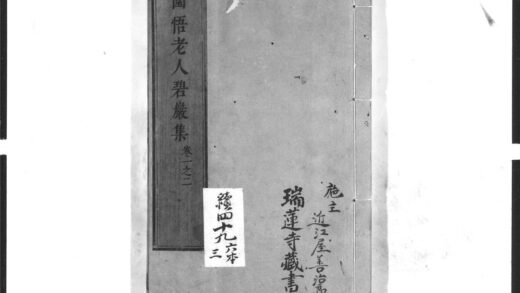 圜悟老人碧巖集 卷一之二
施主 近江屋善
瑞蓮寺藏書
續四十九 六本
三